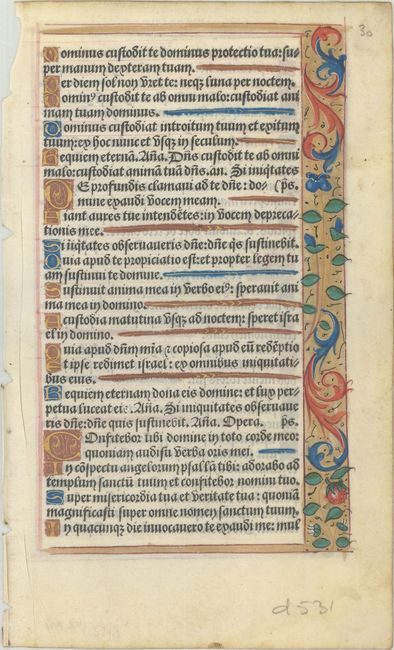 30
Dominus custodit te dominus protectio tua: su
per manum dexteram tuam.
Per diem sol non vret te: neqȝ luna per noctem.
Dominꝰ custodit te ab omni malo: custodiat ani
mam tuam dominus.
Dominus custodiat introitum tuum et exitum
tuum: ex hoc nunc et vsqȝ in seculum.
Requiem eternã. Aña. Dñs custodit te ab omni
malo: custodiat animã tuã dñs. añ. Si iniqtates
DE profundis clamaui ad te dñe: do- p̃s.
mine exaudi vocem meam.
Fiant aures tue intendẽtes: in vocem depreca-
tionis mee.
Si iiqtates obseruaueris dñe: dñe q̃s sustinebit.
Quia apud te propiciatio est: et propter legem tu
am sustinui te domine.
Sustinuit anima mea in verbo eiꝰ: sperauit ani
ma mea in domino.
A custodia matutina vsqȝ ad noctem: speret isra
el in domino.
Quia apud dñm mĩa ⁊ copiosa apud eũ redẽptio
Et ipse redimet israel: ex omnibus iniquitati
bus eius.
Requiem eternam dona eis domine: et lux per
petua luceat eis. Aña. Si iniquitates obseruaue
ris dñe: dñe quis sustinebit. Aña. Opera. p̃s.
COnfitebor tibi domine in toto corde meo:
quoniam audisti verba oris mei.
In cõspectu angelorum psallã tibi: adorabo ad
templum sanctũ tuum et confitebor nomini tuo.
Super misericordia tua et veritate tua: quoniã
magnificasti super omne nomen sanctum tuum.
In quacunqȝ die inuocauero te exaudi me: mul
d 531